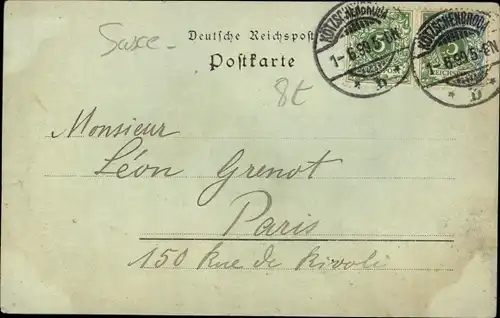 Saxe -
Deutsche Reichspost
Postkarte
8t
KÖTZSCHENBRODA
1-6.99.5-6N.
* D *
5
KÖTZSCHENBRODA
1-6.99.5-6N.
* D *
5
REICHSPOST
Monsieur
Léon Grenot
Paris
150 Rue de Rivoli